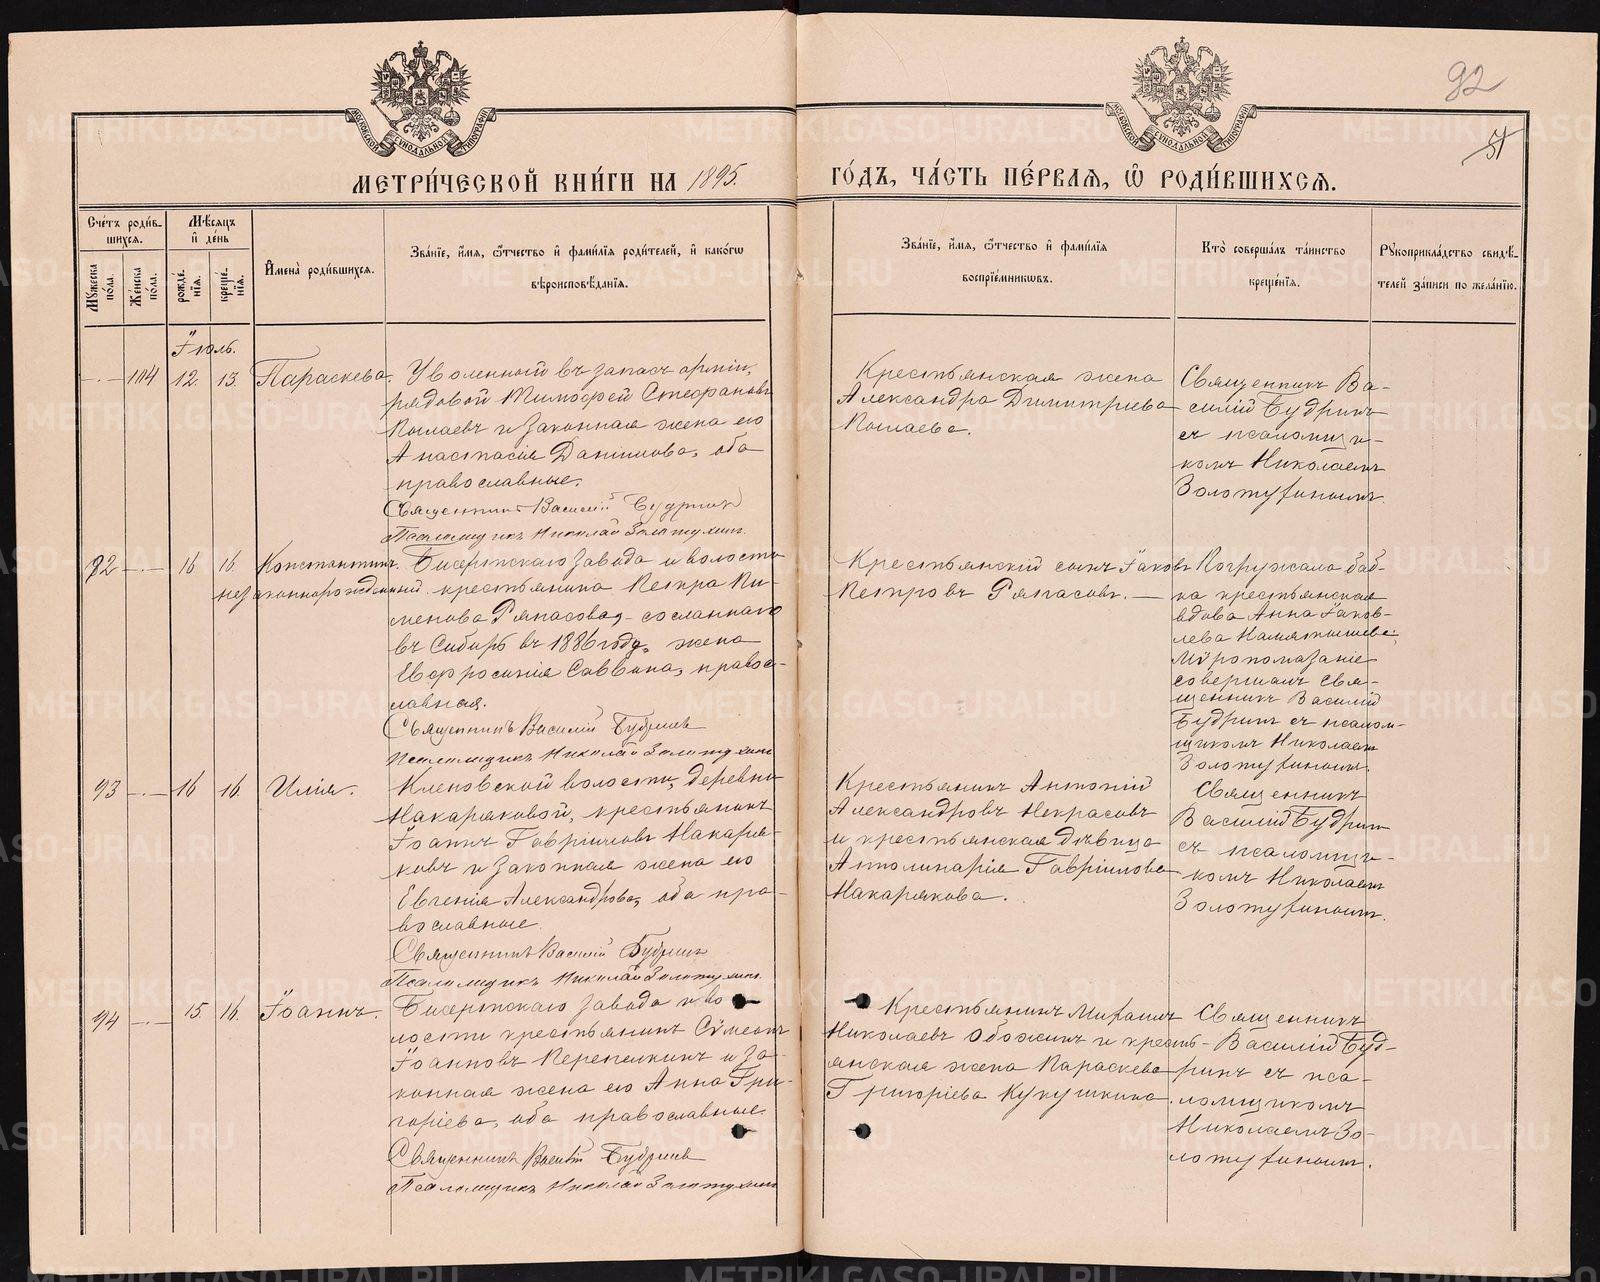 92
51
МОСКОВСКОЙ СѴНОДАЛЬНОЙ ТИПОГРАФІИ
МОСКОВСКОЙ СѴНОДАЛЬНОЙ ТИПОГРАФІИ
МЕТРИ́ЧЕСКОЙ КНИ́ГИ НА 1895.
ГО́ДЪ, ЧА́СТЬ ПЕ́РВАѦ, Ѡ҆ РОДИ́ВШИХСѦ.
Сче́тъ роди́в-
шихсѧ.
Мꙋ́жеска по́ла.
Же́нска по́ла.
Мѣ́сѧцъ
и҆ де́нь
рожде́нїѧ.
креще́нїѧ.
И҆мена̀ роди́вшихсѧ.
Зва́нїе, и҆́мѧ, ѻ҆́тчество и҆ фамилі́ѧ роди́телей, и҆ како́гѡ
вѣроисповѣ́данїѧ.
Зва́нїе, и҆́мѧ, ѻ҆́тчество и҆ фами́лїѧ
воспрїе́мниковъ.
Кто̀ соверша́лъ та́инство
креще́нїѧ.
Рꙋкоприкла́дство свидѣ́-
телей за́писи по жела́нїю.
Іюль.
104 12. 13. Параскева.
Уволенный въ запасъ арміи,
рядовой Тимофей Стефановъ
Пылаевъ и законная жена его
Анастасія Даніилова, оба
православные.
Священникъ Василій Будринъ
Псаломщикъ Николай Золотухинъ.
Крестьянская жена
Александра Димитріева
Пылаева.
Священникъ Ва-
силій Будринъ
съ псаломщи-
комъ Николаемъ
Золотухинымъ.
92 16 16. Константинъ.
незаконнорожденный.
Бисертскаго завода и волости
крестьянина Петра Пи-
менова Ряпасова, сосланнаго
въ Сибирь въ 1886 году, жена
Евфросинія Саввина, правос-
лавная.
Священникъ Василій Будринъ
Псаломщикъ Николай Золотухинъ
Крестьянскій сынъ Іаковъ
Петровъ Ряпасовъ.
Погружала баб-
ка крестьянская
вдова Анна Іаков-
лева
Мѵропомазаніе
совершалъ свя-
щенникъ Василій
Будринъ съ псалом-
щикомъ Николаемъ
Золотухинымъ.
93 16 16. Илія.
Кленовской волости, деревни
Накаряковой, крестьянинъ
Іоаннъ Гавріиловъ Накаря-
ковъ и законная жена его
Евгенія Александрова, оба пра-
вославные
Священникъ Василій Будринъ
Псаломщикъ Николай Золотухинъ.
Крестьянинъ Антоній
Александровъ Некрасовъ
и крестьянская дѣвица
Апполинарія Гавріилова
Накарякова.
Священникъ
Василій Будринъ
съ псаломщи-
комъ Николаемъ
Золотухинымъ.
94 15. 16. Іоаннъ.
Бисертскаго завода и во-
лости крестьянинъ Сѵмеонъ
Іоанновъ Перепелкинъ и за-
конная жена его Анна Гри-
горіева, оба православные.
Священникъ Василій Будринъ
Псаломщикъ Николай Золотухинъ
Крестьянинъ Михаилъ
Николаевъ Обожинъ и кресть-
янская жена Параскева
Григоріева Кукушкина.
Священникъ
Василій Буд-
ринъ съ пса-
ломщикомъ
Николаемъ Зо-
лотухинымъ.
METRIKI.GASO-URAL.RU